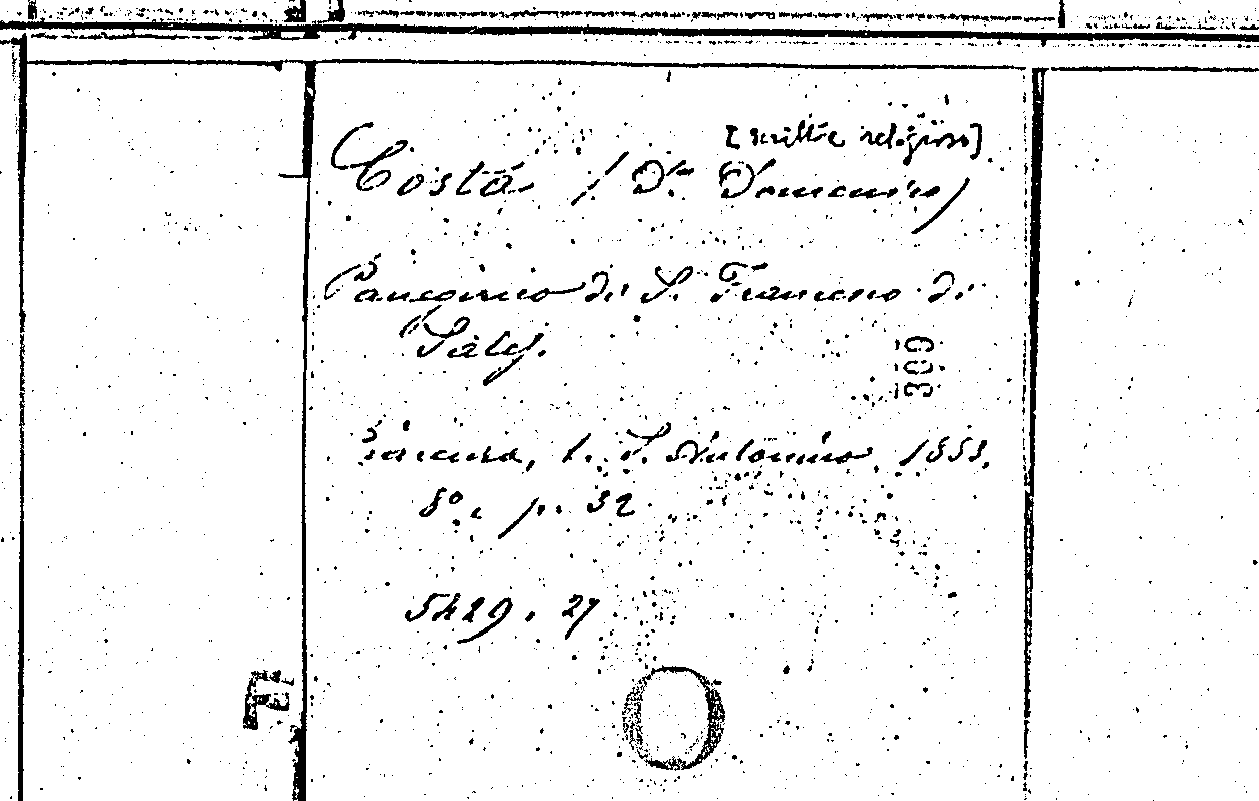 [scritt.e religioso]
Costa (D.n Domenico)
Panegirico di S. Francesco di
Sales.
309
Piacenza, t. S. Antonino, 1853.
8.º p. 32
5429. 27